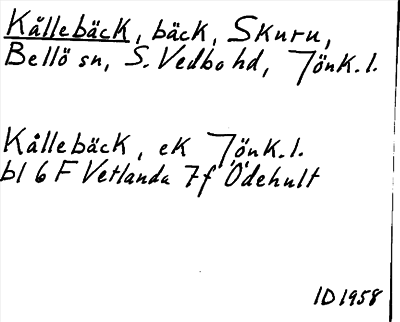 Kållebäck, bäck, Skuru,
Bellö sn, S. Vedbo hd, Jönk. l.
Kållebäck, ek Jönk. l.
bl 6 F Vetlanda 7f Ödehult
ID 1958